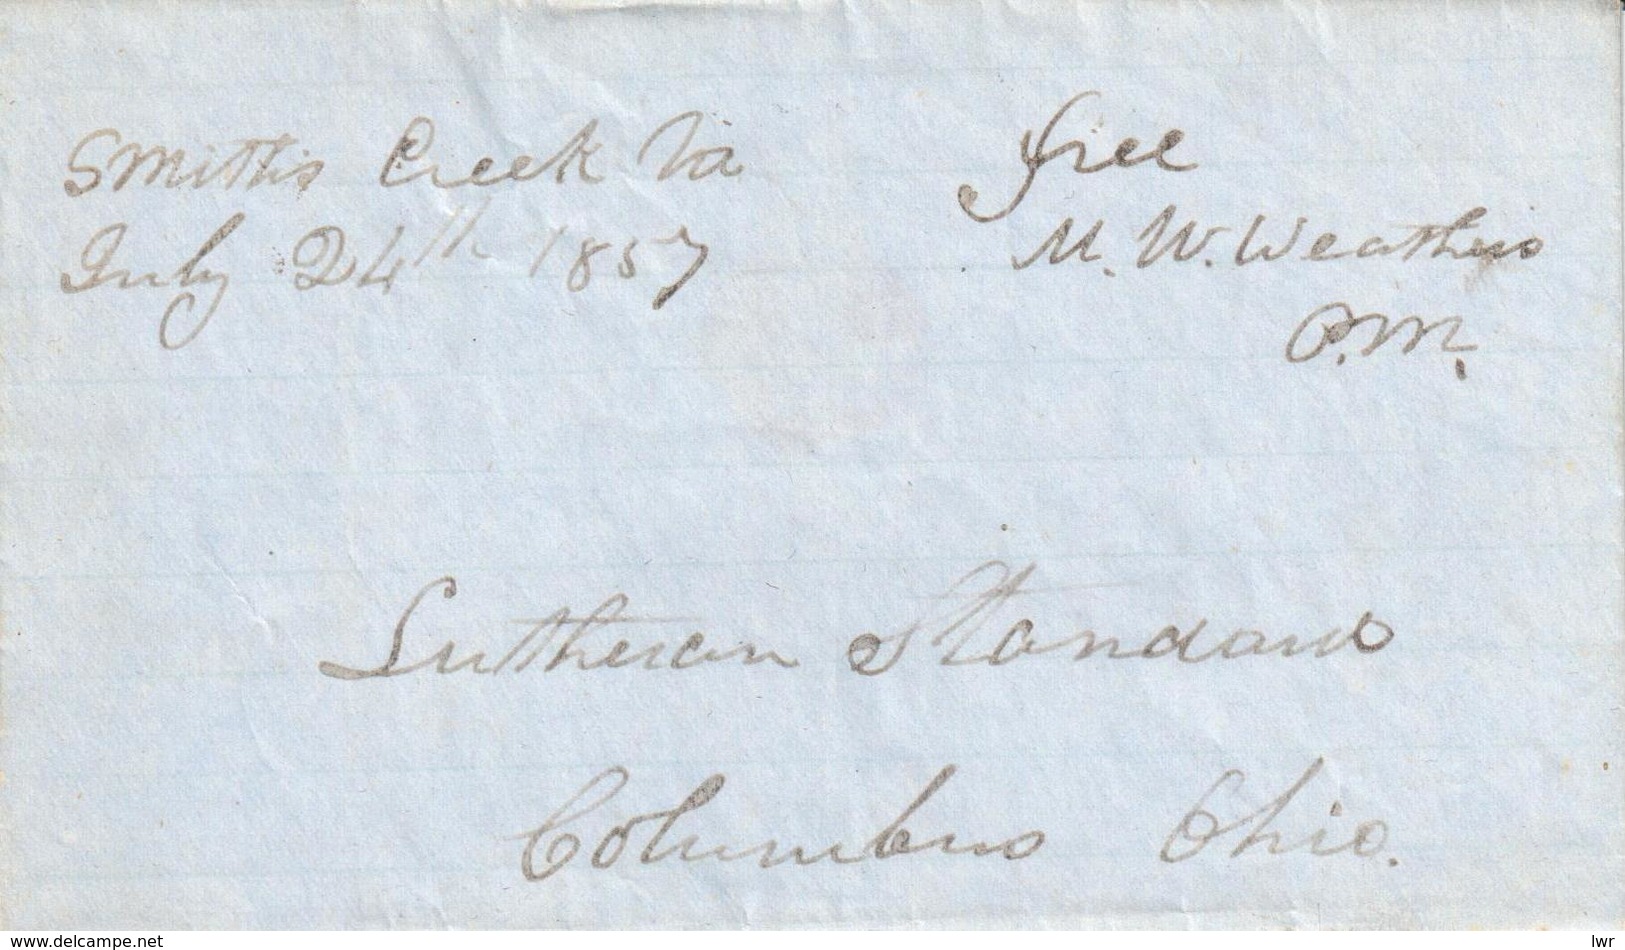 Smith's Creek Va
July 24th 1857
free
M. W. Weathers
P.M.
Lutheran Standard
Columbus Ohio.
www.delcampe.net
lwr